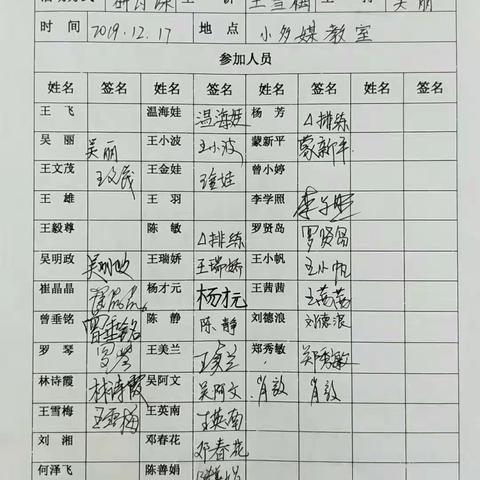 研讨课 王雪梅 吴丽
时间 2019.12.17 地点 小多媒教室
参加人员
姓名 签名 姓名 签名 姓名 签名
王飞 温海娃 温海娃 杨芳 △排练
吴丽 吴丽 王小波 王小波 蒙新平 蒙新平
王文茂 王文茂 王金娃 王金娃 曾小婷
王雄 王羽 李学照 李学照
王毅尊 陈敏 △排练 罗贤岛 罗贤岛
吴明政 吴明政 王瑞娇 王瑞娇 王小帆 王小帆
崔晶晶 崔晶晶 杨才元 杨才元 王茜茜 王茜茜
曾垂铭 曾垂铭 陈静 陈静 刘德浪 刘德浪
罗琴 罗琴 王美兰 王美兰 郑秀敏 郑秀敏
林诗霞 林诗霞 吴阿文 吴阿文 肖敏 肖敏
王雪梅 王雪梅 王英南 王英南
刘湘 邓春花 邓春花
何泽飞 陈善娟